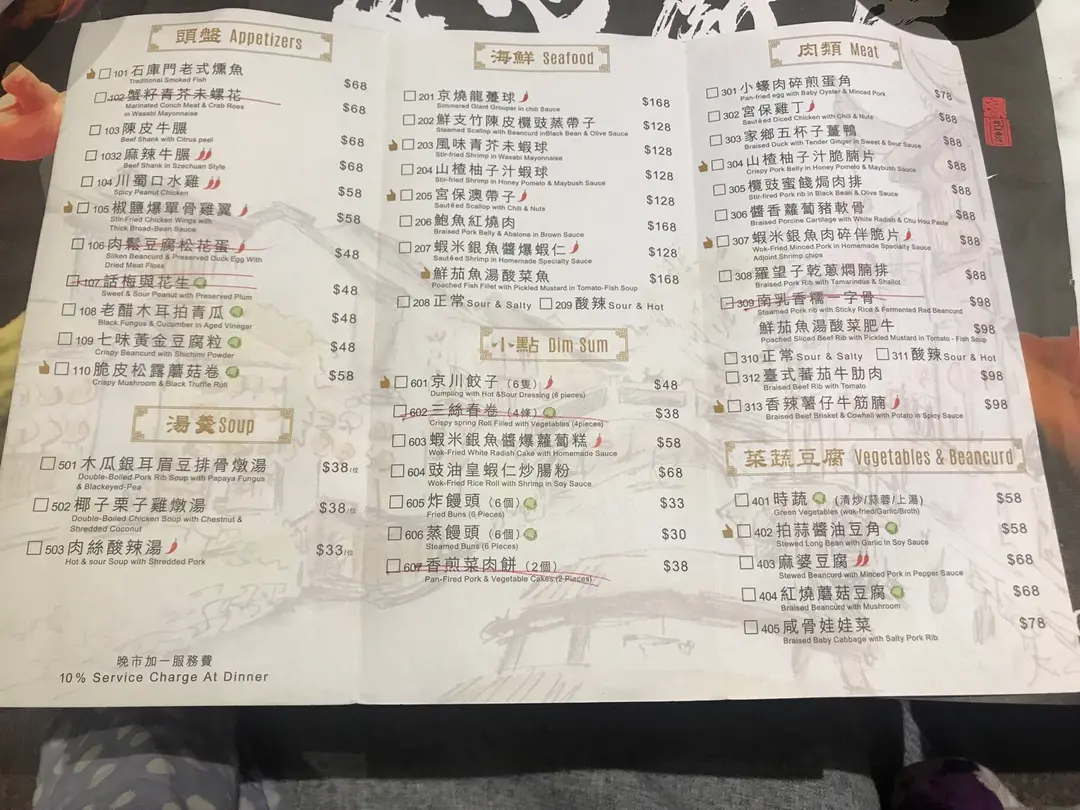 頭盤 Appetizers
101 石庫門老式燻魚
Traditional Smoked Fish
$68
102 蟹籽青芥末螺花
Marinated Conch Meat & Crab Roes
in Wasabi Mayonnaise
$68
103 陳皮牛腒
Beef Shank with Citrus peel
$68
1032 麻辣牛腒
Beef Shank in Szechuan Style
$68
104 川蜀口水雞
Spicy Peanut Chicken
$58
105 椒鹽爆單骨雞翼
Stir-Fried Chicken Wings with
Thick Broad-Bean Sauce
$58
106 肉鬆豆腐松花蛋
Silken Beancurd & Preserved Duck Egg With
Dried Meat Floss
$48
107 話梅與花生
Sweet & Sour Peanut with Preserved Plum
$48
108 老醋木耳拍青瓜
Black Fungus & Cucumber in Aged Vinegar
$48
109 七味黃金豆腐粒
Crispy Beancurd with Shichimi Powder
$48
110 脆皮松露蘑菇卷
Crispy Mushroom & Black Truffle Roll
$58
湯羹 Soup
501 木瓜銀耳眉豆排骨燉湯
Double-Boiled Pork Rib Soup with Papaya Fungus
& Blackeyed-Pea
$38/位
502 椰子栗子雞燉湯
Double-Boiled Chicken Soup with Chestnut &
Shredded Coconut
$38/位
503 肉絲酸辣湯
Hot & sour Soup with Shredded Pork
$33/位
晚市加一服務費
10% Service Charge At Dinner
海鮮 Seafood
201 京燒龍躉球
Simmered Giant Grouper in chili Sauce
$168
202 鮮支竹陳皮欖豉蒸帶子
Steamed Scallop with Beancurd InBlack Bean & Olive Sauce
$128
203 風味青芥末蝦球
Stir-fried Shrimp in Wasabi Mayonnaise
$128
204 山楂柚子汁蝦球
Stir-fried Shrimp in Honey Pomelo & Maybush Sauce
$128
205 宮保澳帶子
Sautéed Scallop with Chili & Nuts
$128
206 鮑魚紅燒肉
Braised Pork Belly & Abalone in Brown Sauce
$168
207 蝦米銀魚醬爆蝦仁
Stir-fried Shrimp in Homemade Specialty Sauce
$128
鮮茄魚湯酸菜魚
Poached Fish Fillet with Pickled Mustard in Tomato-Fish Soup
$168
208 正常 Sour & Salty 209 酸辣 Sour & Hot
小點 Dim Sum
601 京川餃子（6隻）
Dumpling with Hot &Sour Dressing (6 pieces)
$48
602 三絲春卷（4條）
Crispy spring Roll Filled with Vegetables (4pieces)
$38
603 蝦米銀魚醬爆蘿蔔糕
Wok-Fried White Radish Cake with Homemade Sauce
$58
604 豉油皇蝦仁炒腸粉
Wok-Fried Rice Roll with Shrimp in Soy Sauce
$68
605 炸饅頭（6個）
Fried Buns (6 Pieces)
$33
606 蒸饅頭（6個）
Steamed Buns (6 Pieces)
$30
607 香煎菜肉餅（2個）
Pan-Fired Pork & Vegetable Cakes (2 Pieces)
$38
肉類 Meat
301 小蠔肉碎煎蛋角
Pan-fried egg with Baby Oyster & Minced Pork
$78
302 宮保雞丁
Sautéed Diced Chicken with Chili & Nuts
$88
303 家鄉五杯子薑鴨
Braised Duck with Tender Ginger in Sweet & Sour Sauce
$88
304 山楂柚子汁脆腩片
Crispy Pork Belly in Honey Pomelo & Maybush Sauce
$88
305 欖豉蜜餞焗肉排
Stir-fired Pork rib in Black Bean & Olive Sauce
$88
306 醬香蘿蔔豬軟骨
Braised Porcine Cartilage with White Radish & Chu Hou Paste
$88
307 蝦米銀魚肉碎伴脆片
Wok-Fried Minced Pork in Homemade Specialty Sauce
Adjoint Shrimp chips
$88
308 羅望子乾蔥燜腩排
Braised Pork Rib with Tamarindus & Shallot
$88
309 南乳香糯一字骨
Steamed Pork rib with Sticky Rice & Fermented Red Beancurd
$98
鮮茄魚湯酸菜肥牛
Poached Sliced Beef Rib with Pickled Mustard in Tomato - Fish Soup
$98
310 正常 Sour & Salty 311 酸辣 Sour & Hot
312 臺式蕃茄牛肋肉
Braised Beef Rib with Tomato
$98
313 香辣薯仔牛筋腩
Braised Beef Brisket & Cowheel with Potato in Spicy Sauce
$98
菜蔬豆腐 Vegetables & Beancurd
401 時蔬 （清炒/蒜蓉/上湯）
Green Vegetables (wok-fried/Garlic/Broth)
$58
402 拍蒜醬油豆角
Stewed Long Bean with Garlic In Soy Sauce
$58
403 麻婆豆腐
Stewed Beancurd with Minced Pork in Pepper Sauce
$68
404 紅燒蘑菇豆腐
Braised Beancurd with Mushroom
$68
405 咸骨娃娃菜
Braised Baby Cabbage with Salty Pork Rib
$78